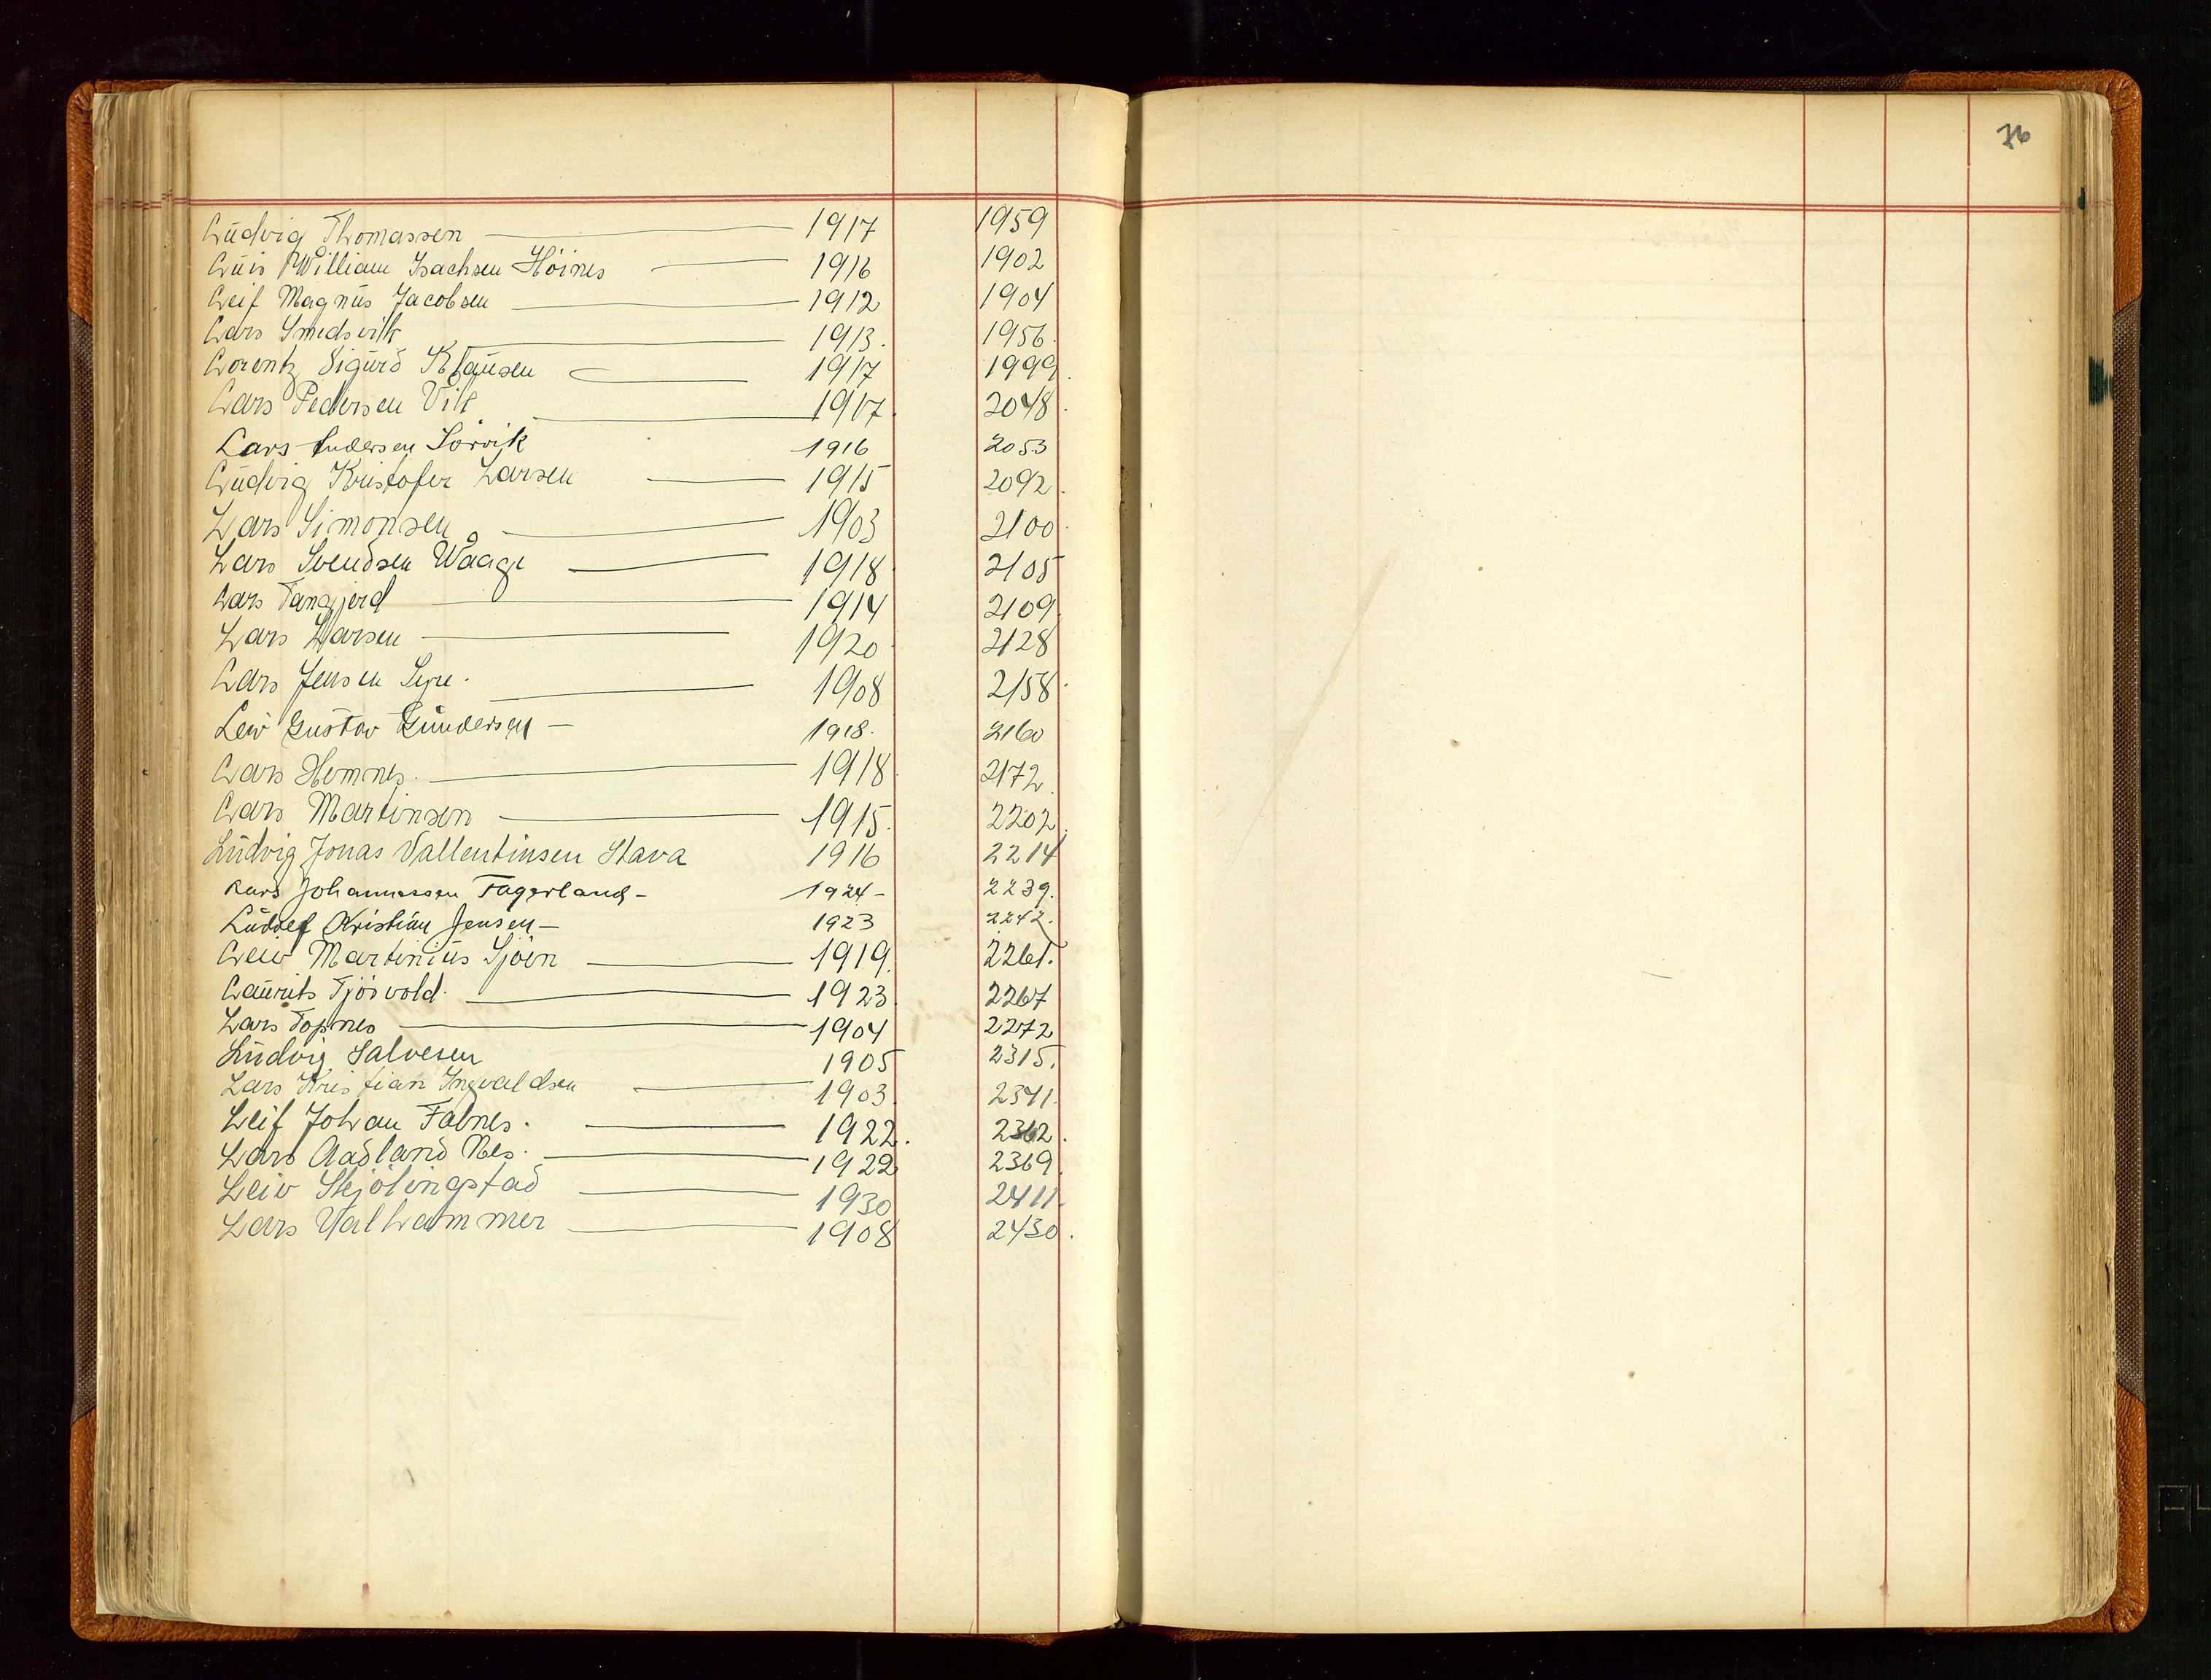 76
Ludvig Thomassen 1917 1959
Luis William Isachsen Höines 1916 1902
Leif Magnus Jacobsen 1912 1904
Lars Smedsvik 1913. 1956.
Lorentz Sigurd Klausen 1917 1999.
Lars Pedersen Vik 1917. 2048.
Lars Andersen Sörvik 1916 2053
Ludvig Kristofer Larsen 1915 2092.
Lars Simonsen 1903 2100.
Lars Svendsen Waage 1918 2105
Lars Tangjerd 1914 2109.
Lars Larsen 1920 2128
Lars Jensen Syre. 1908 2158.
Leiv Gustav Gundersen — 1918. 2160
Lars Hemnes. 1918. 2172.
Lars Martinsen 1915. 2202.
Ludvig Jonas Vallentinsen Stava 1916 2214
Lars Johannessen Fagerland - 1924 - 2239.
Ludolf Kristian Jensen — 1923 2242.
Leiv Martinius Sjöen 1919. 2261.
Laurits Tjösvold. 1923. 2267
Lars Topnes 1904 2272
Ludvig Salvesen 1905 2315.
Lars Kristian Ingvaldsen 1903. 2341.
Leif Johan Falnes. 1922. 2362.
Lars Aadland Nes. 1922 2369
Leiv Skjölingstad 1930 2411.
Lars Valhammer 1908 2430.